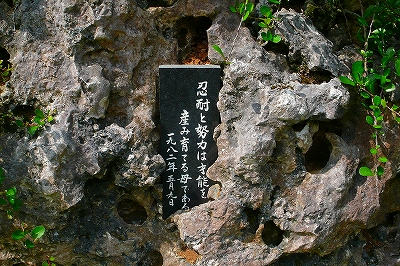 忍耐と努力は才能を
産み育てる母である
一九八二年五月九日